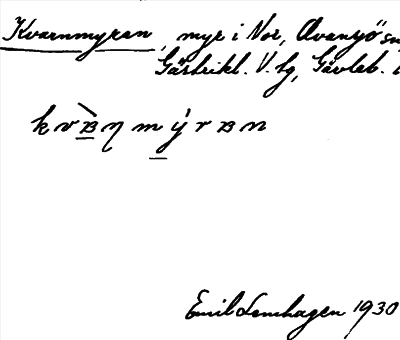 Kvarnmyran, myr i Nor, Ovansjö sn
Gästrikl. V. tg, Gävleb. l
k v ʙ̀ η m ý r ʙ n
Emil Lemhagen 1930